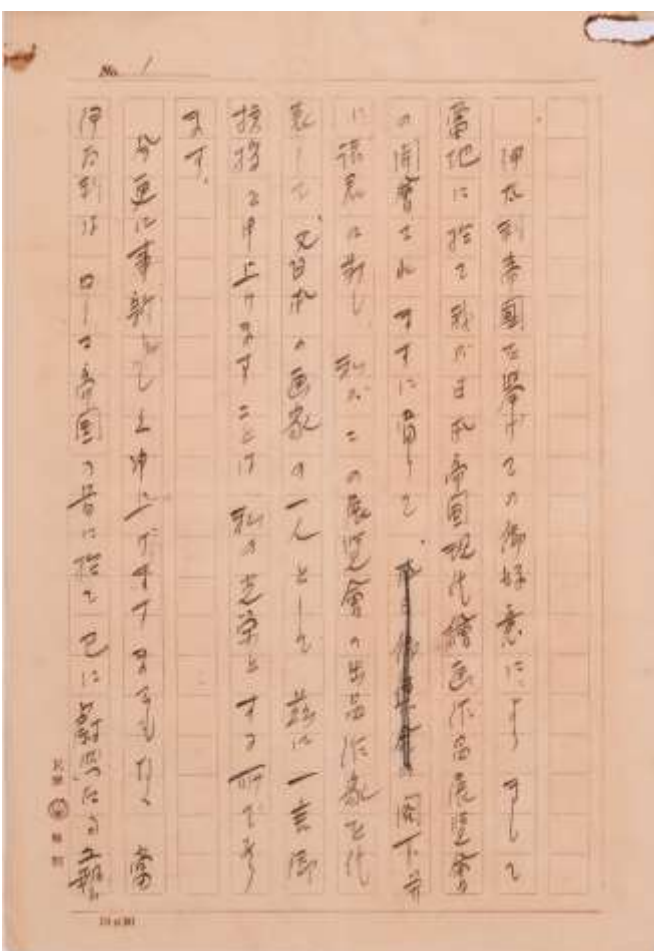 No. 1
伊太利帝國を挙げての御好意によりまして
當地に於て我が日本帝国現代繪画作品展覧會
の開會されますに當りて 閣下并
に諸君に対し 私がこの展覧會の出品作家を代
表して 又日本の画家の一人として 茲に一言御
挨拶を申上げますことは 私の光栄とする所であり
ます。
今更に事新らしく申上げますまでもなく 當
伊太利は ローマ帝国の昔に於て 已に